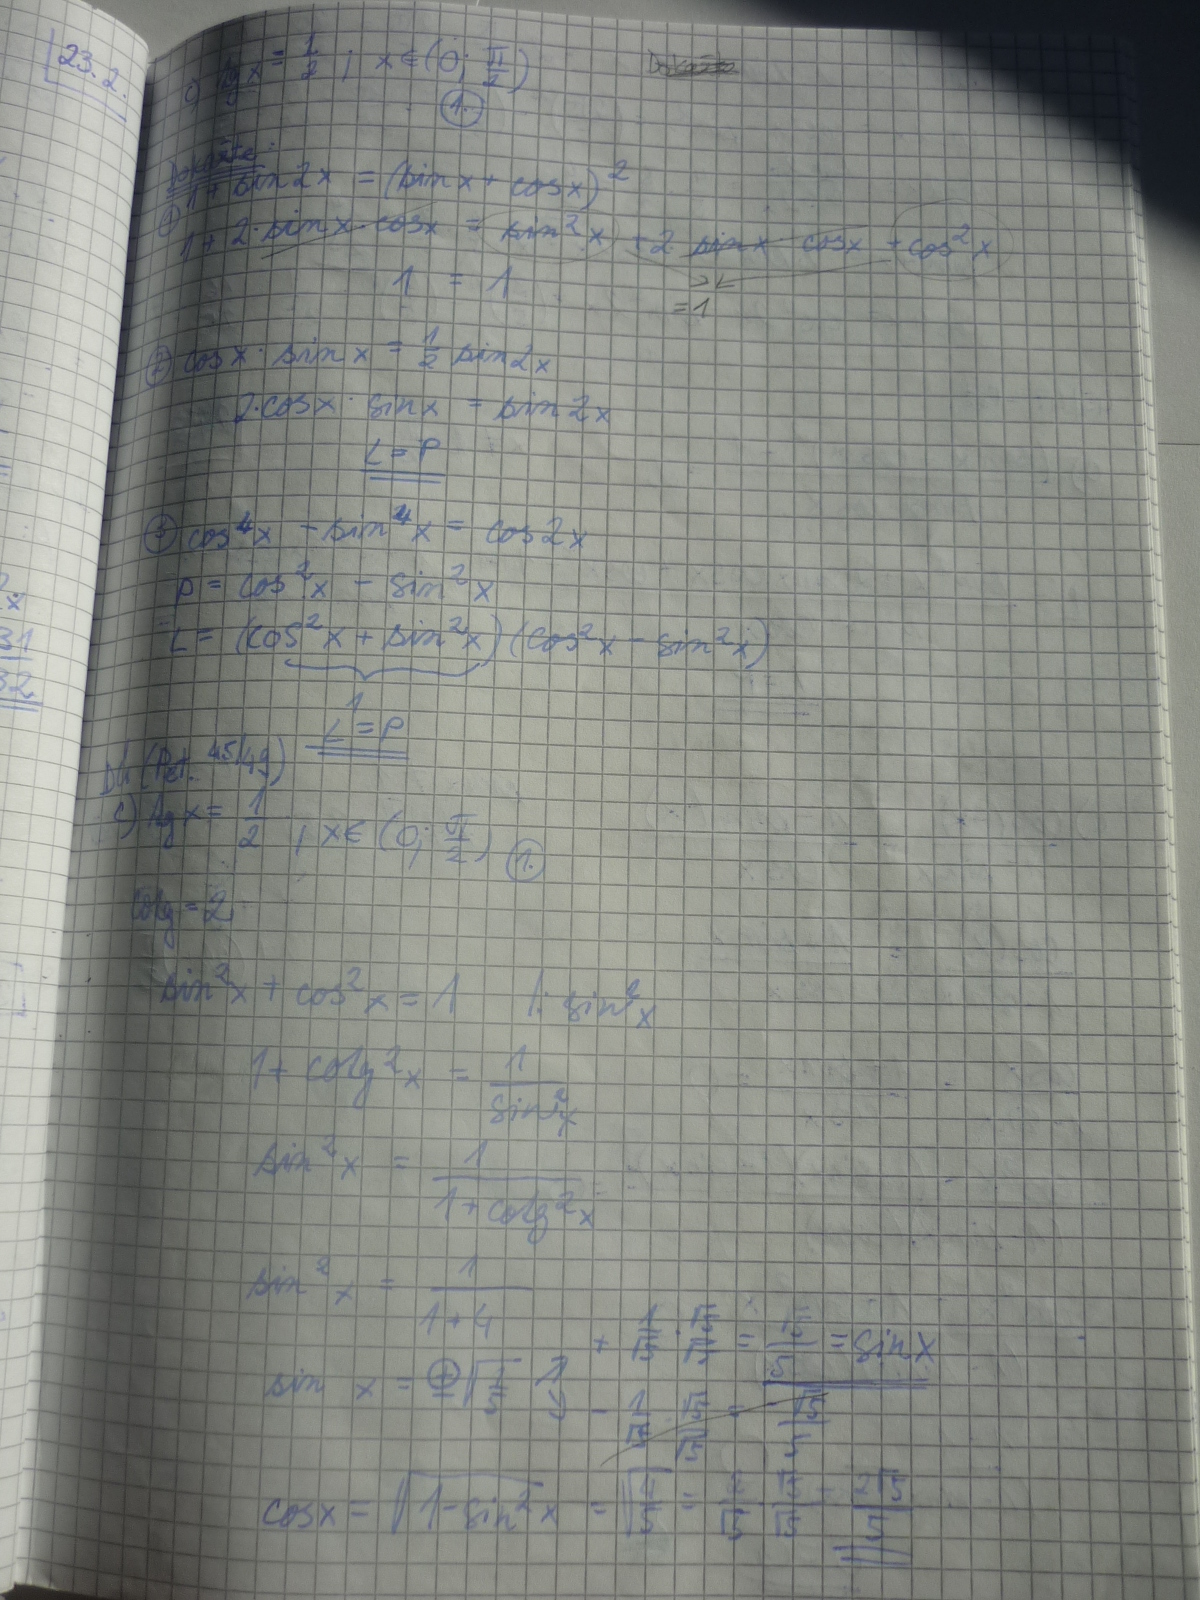 23.2.
c) tg x = 1/2 ; x ∈ (0; π/2)
1.
Dokažte:
① 1 + sin 2x = (sin x + cos x)²
1 + 2 · sin x · cos x = sin² x + 2 sin x cos x + cos² x
1 = 1
= 1
② cos x · sin x = 1/2 sin 2x
2 · cos x · sin x = sin 2x
L = P
③ cos⁴ x - sin⁴ x = cos 2x
P = cos² x - sin² x
L = (cos² x + sin² x)(cos² x - sin² x)
1
L = P
(Pet. 45/49)
c) tg x = 1/2 ; x ∈ (0; π/2) 1.
cotg = 2
sin² x + cos² x = 1 /: sin² x
1 + cotg² x = 1/sin² x
sin² x = 1/(1 + cotg² x)
sin² x = 1/(1 + 4)
+ 1/√5 · √5/√5 = √5/5 = sin x
sin x = ± √(1/5)
- 1/√5 √5/√5 = - √5/5
cos x = √(1 - sin² x) = √(4/5) = 2/√5 √5/√5 = 2√5/5
31
32